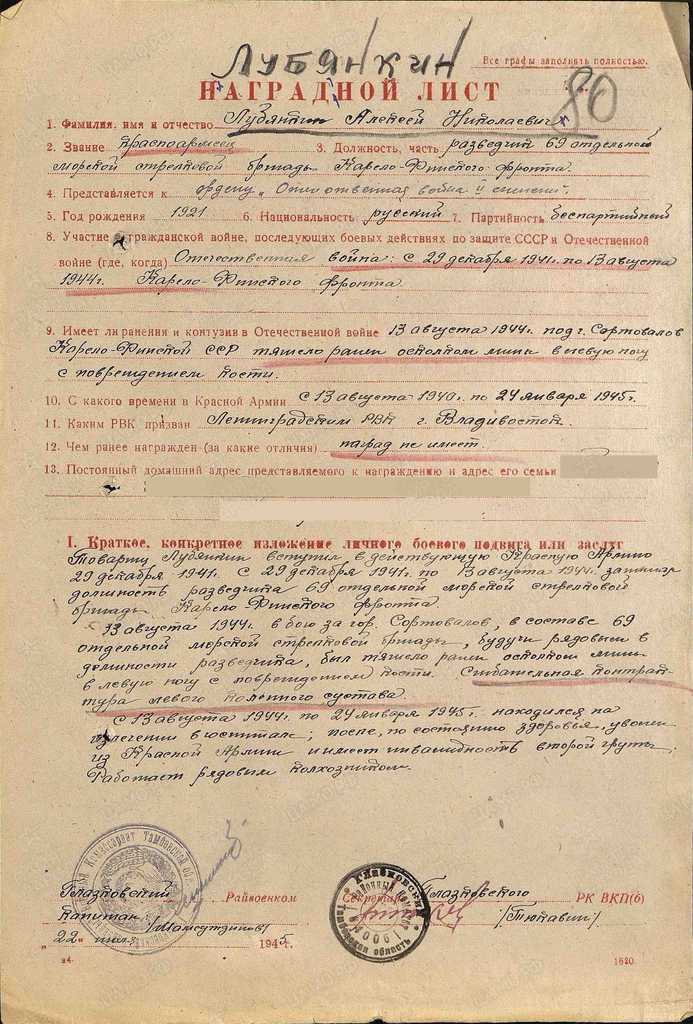 ЛУБЯНКИН
Все графы заполнять полностью.
80
НАГРАДНОЙ ЛИСТ
1. Фамилия, имя и отчество Лубянкин Алексей Николаевич
2. Звание красноармеец 3. Должность, часть разведчик 69 отдельной
морской стрелковой бригады Карело-Финского фронта.
4. Представляется к ордену „Отечественная война II степени".
5. Год рождения 1921 6. Национальность русский 7. Партийность беспартийный
8. Участие в гражданской войне, последующих боевых действиях по защите СССР и Отечественной
войне (где, когда) Отечественная война: с 29 декабря 1941г. по 13 августа
1944г. Карело-Финского фронта.
9. Имеет ли ранения и контузии в Отечественной войне 13 августа 1944г. под г. Сортовалов
Карело-Финской ССР тяжело ранен осколком мины в левую ногу
с повреждением кости.
10. С какого времени в Красной Армии с 13 августа 1940г. по 24 января 1945г.
11. Каким РВК призван Ленинградским РВК г. Владивосток.
12. Чем ранее награжден (за какие отличия) наград не имеет.
13. Постоянный домашний адрес представляемого к награждению и адрес его семьи
I. Краткое, конкретное изложение личного боевого подвига или заслуг
Товарищ Лубянкин вступил в действующую Красную Армию
29 декабря 1941г. С 29 декабря 1941г. по 13 августа 1944г. занимал
должность разведчика 69 отдельной морской стрелковой
бригады Карело-Финского фронта.
13 августа 1944г. в бою за гор. Сортовалов, в составе 69
отдельной морской стрелковой бригады, будучи рядовым в
должности разведчика, был тяжело ранен осколком мины
в левую ногу с повреждением кости. Сгибательная контрак
тура левого коленного сустава.
С 13 августа 1944г. по 24 января 1945г. находился на
излечении в госпитале; после, по состоянию здоровья, уволен
из Красной Армии и имеет инвалидность второй группы.
Работает рядовым колхозником.
Глазковский Райвоенком Секретарь Глазковского РК ВКП(б)
капитан
22 июля 1945г.
Тамбовская область
24. 1620